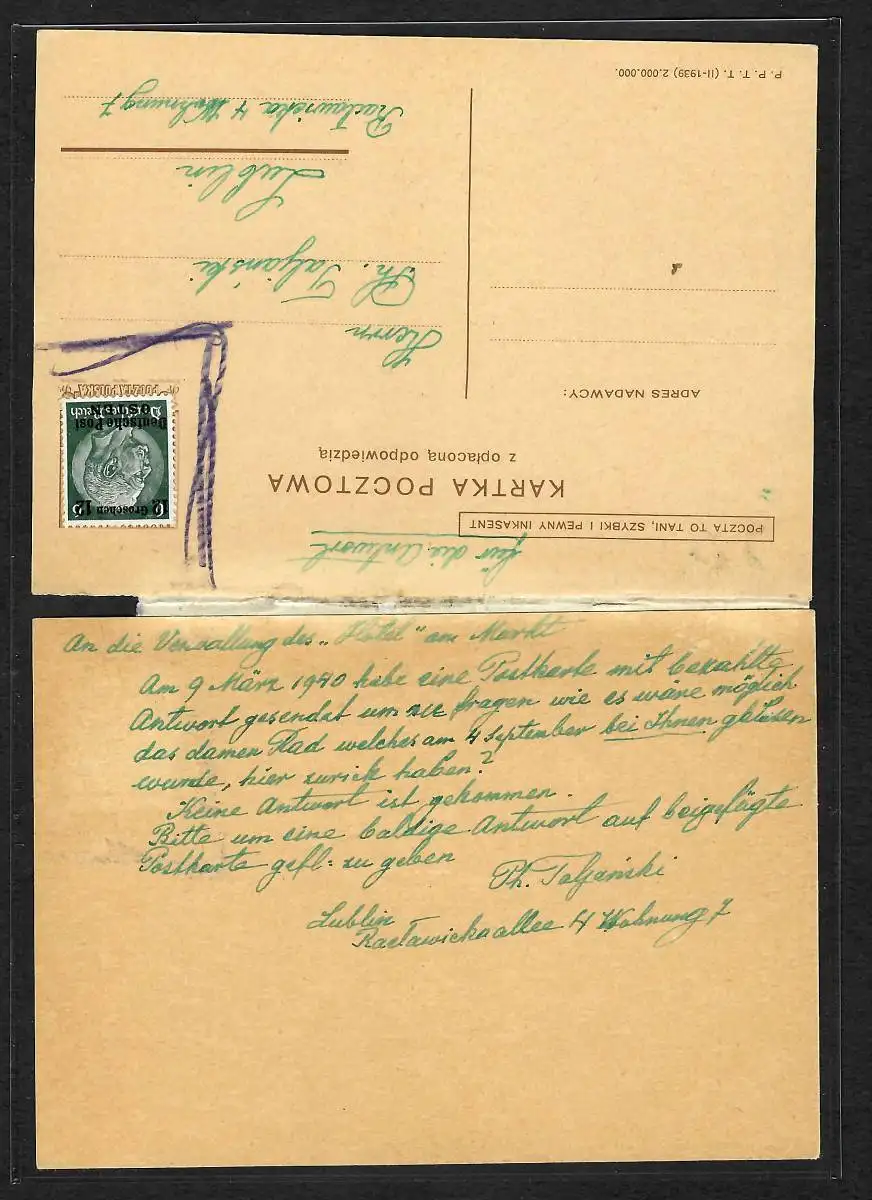 P. P. T. T. (II-1939) 2.000.000.
Racławicka 4 Wohnung 7
Lublin
Ph. Taljański
Herrn
ADRES NADAWCY:
POCZTA POLSKA
Deutsches Reich
Deutsche Post
OSTEN
12 Groschen 12
z opłaconą odpowiedzią
KARTKA POCZTOWA
POCZTA TO TANI, SZYBKI I PEWNY INKASENT
für die Antwort
An die Verwaltung des „Hotel" am Markt
Am 9 März 1940 habe eine Postkarte mit bezahlte
Antwort gesendet um zu fragen wie es wäre möglich
das damen Rad welches am 4 September bei Ihnen gelassen
wurde, hier zurick haben?
Keine Antwort ist gekommen.
Bitte um eine baldige Antwort auf beigefügte
Postkarte gefl: zu geben
Ph. Taljański
Lublin
Racławickaallee 4 Wohnung 7